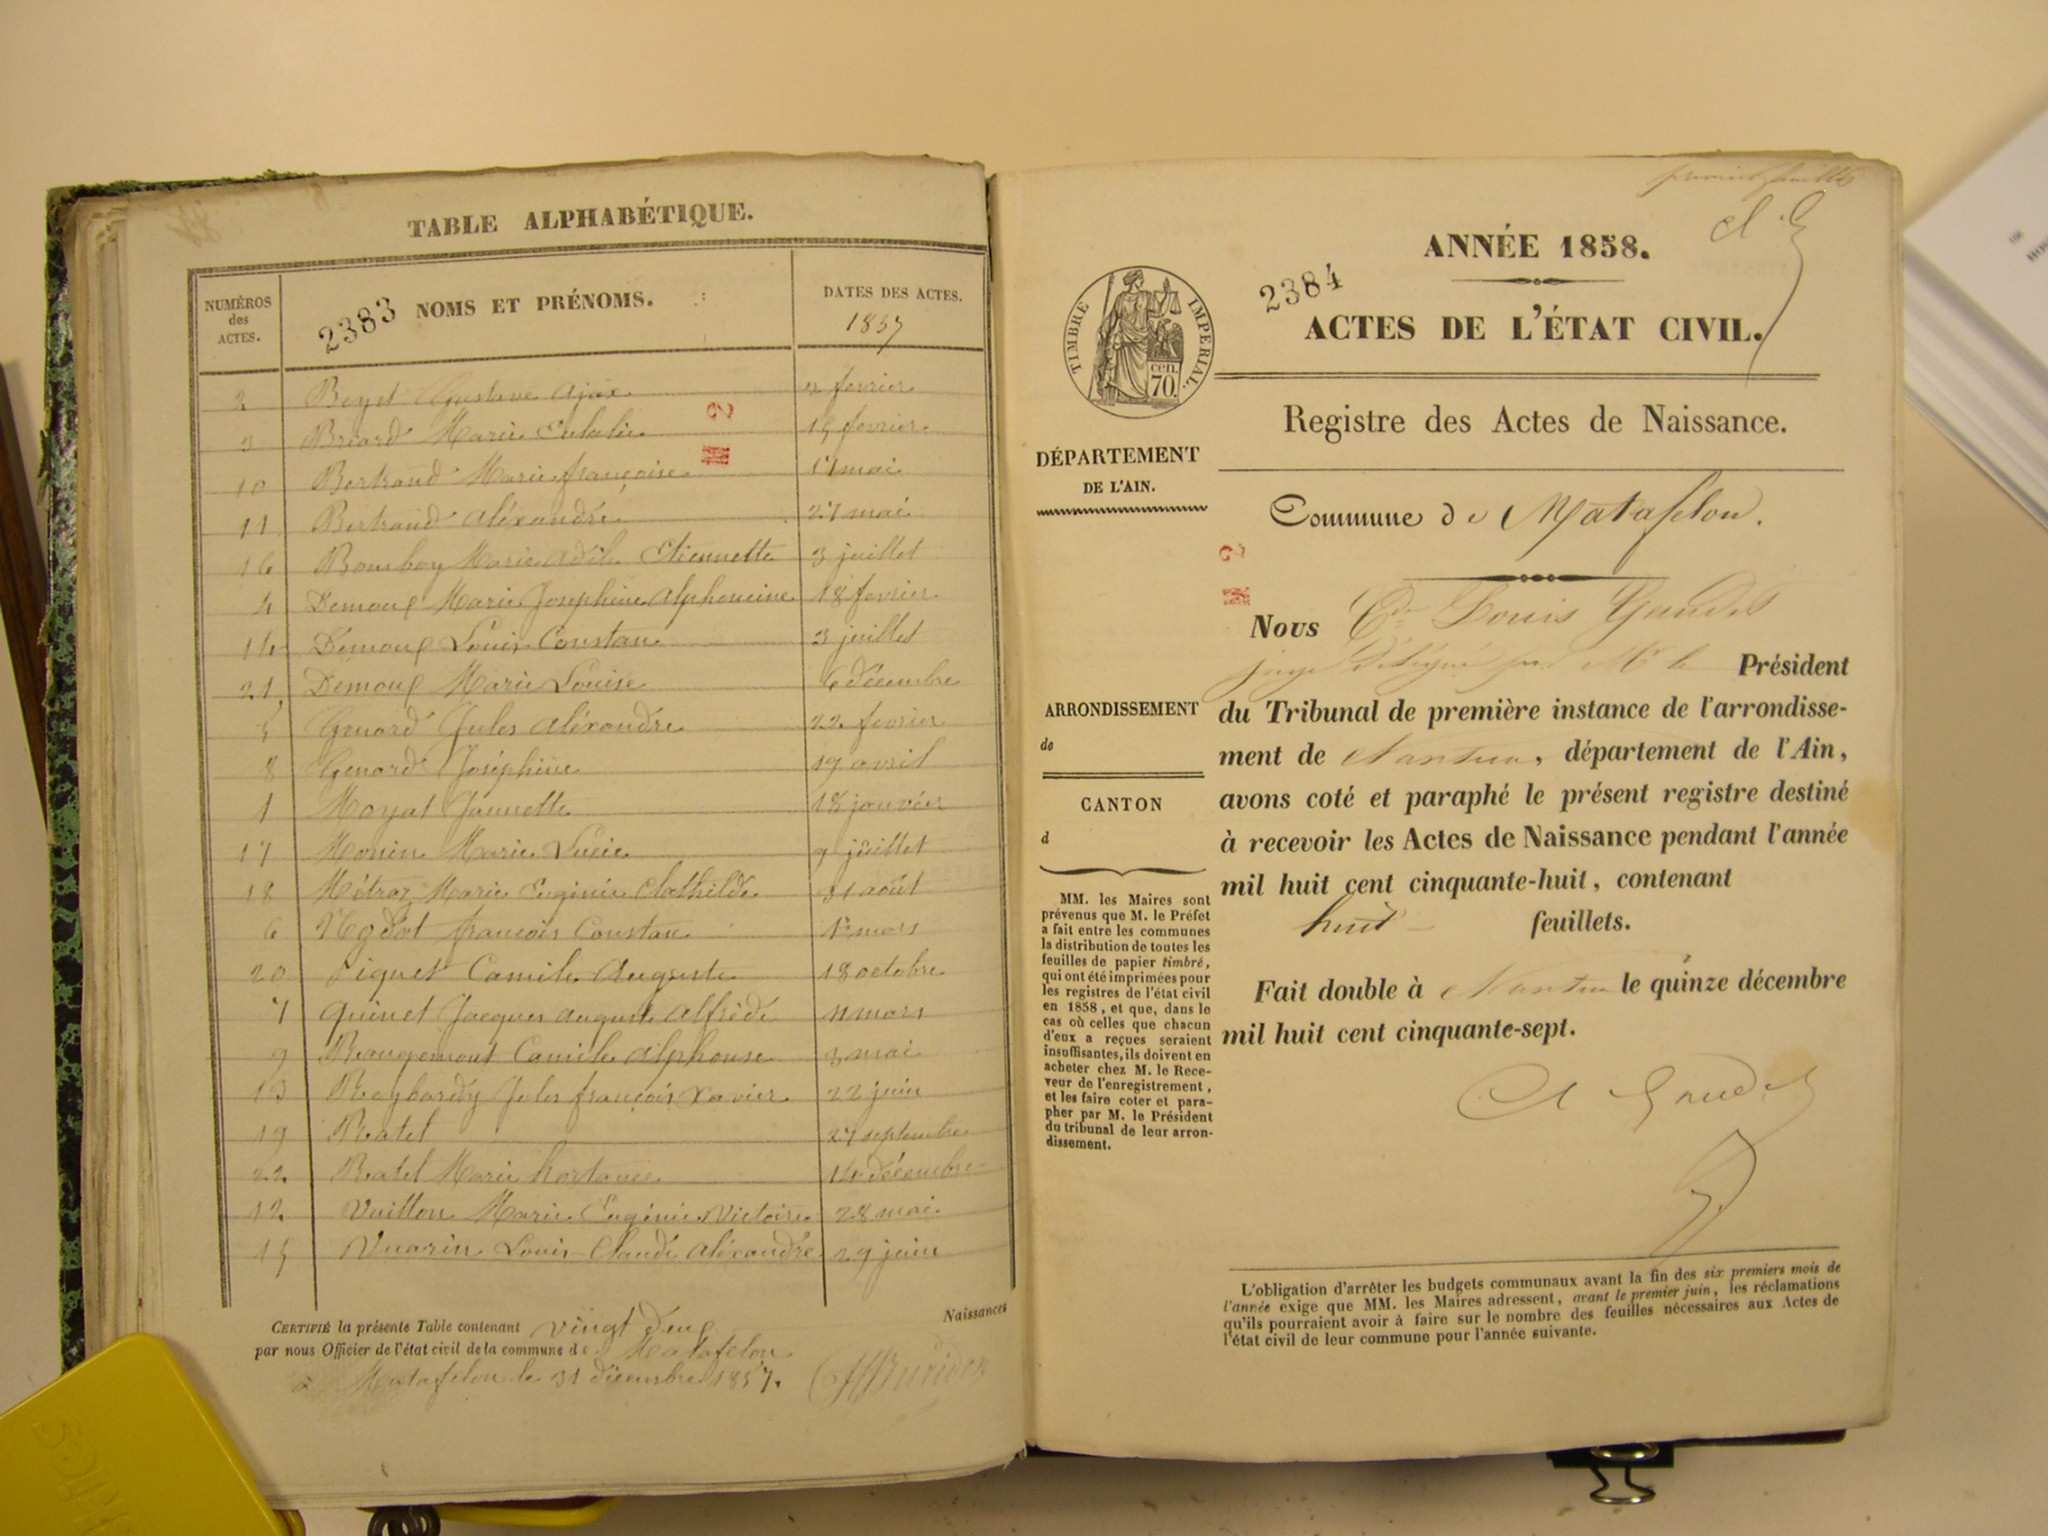 TABLE ALPHABÉTIQUE.
NUMÉROS
des
ACTES.
2383 NOMS ET PRÉNOMS.
DATES DES ACTES.
1857
2 Gustave fevrier
3 Marie Eulalie 15 fevrier
10 Bertrand Marie françoise mai
11 Bertrand aléxandre 27 mai
16 Marie Etiennette 3 juillet
4 Marie Joséphine Alphoncine 18 fevrier
14 Louis Constan 3 juillet
21 Marie Louise 6 décembre
5 Jules aléxandre 22 fevrier
8 Joséphine 19 avril
1 Moyat Jannette 18 janvier
17 Monin Marie Lucie 9 juillet
18 Métraz Marie Eugénie Clothilde 31 août
6 françois Constan mars
20 Camile Auguste 18 octobre
7 quinet Jacques auguste alfréde 11 mars
9 Rougemont Camile alphonse mai
13 Reybardy Jules françois Xavier 22 juin
19 Ratel 27 septembre
22 Ratel Marie hortance 14 décembre
12 Vuillon Marie Eugénie Victoire 28 mai
15 Vuarin Louis Claude aléxandre 29 juin
Naissances
CERTIFIÉ la présente Table contenant vingt deux
par nous Officier de l'état civil de la commune de Matafelon
à Matafelon le 31 décembre 1857.
premier feuillet
ANNÉE 1858.
2384
TIMBRE IMPERIAL.
cen.
70.
ACTES DE L'ÉTAT CIVIL.
Registre des Actes de Naissance.
DÉPARTEMENT
DE L'AIN.
Commune de Matafelon.
Nous Louis
juge délégué par Mr le Président
ARRONDISSEMENT
de
du Tribunal de première instance de l'arrondisse-
ment de Nantua, département de l'Ain,
avons coté et paraphé le présent registre destiné
à recevoir les Actes de Naissance pendant l'année
mil huit cent cinquante-huit, contenant
huit feuillets.
Fait double à Nantua le quinze décembre
mil huit cent cinquante-sept.
CANTON
d
MM. les Maires sont
prévenus que M. le Préfet
a fait entre les communes
la distribution de toutes les
feuilles de papier timbré,
qui ont été imprimées pour
les registres de l'état civil
en 1858, et que, dans le
cas où celles que chacun
d'eux a reçues seraient
insuffisantes, ils doivent en
acheter chez M. le Rece-
veur de l'enregistrement,
et les faire coter et para-
pher par M. le Président
du tribunal de leur arron-
dissement.
L'obligation d'arrêter les budgets communaux avant la fin des six premiers mois de
l'année exige que MM. les Maires adressent, avant le premier juin, les réclamations
qu'ils pourraient avoir à faire sur le nombre des feuilles nécessaires aux Actes de
l'état civil de leur commune pour l'année suivante.